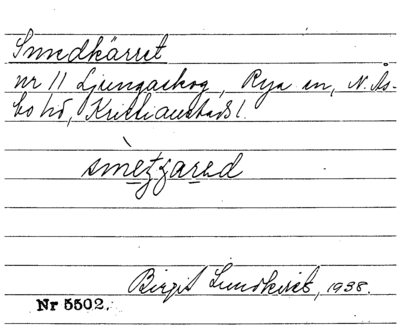 Smedkärret
nr 11 Ljungaskog, Rya sn, N. Ås-
bo hd, Kristianstads l.
Birgit Lundkvist, 1938.
Nr 5502.